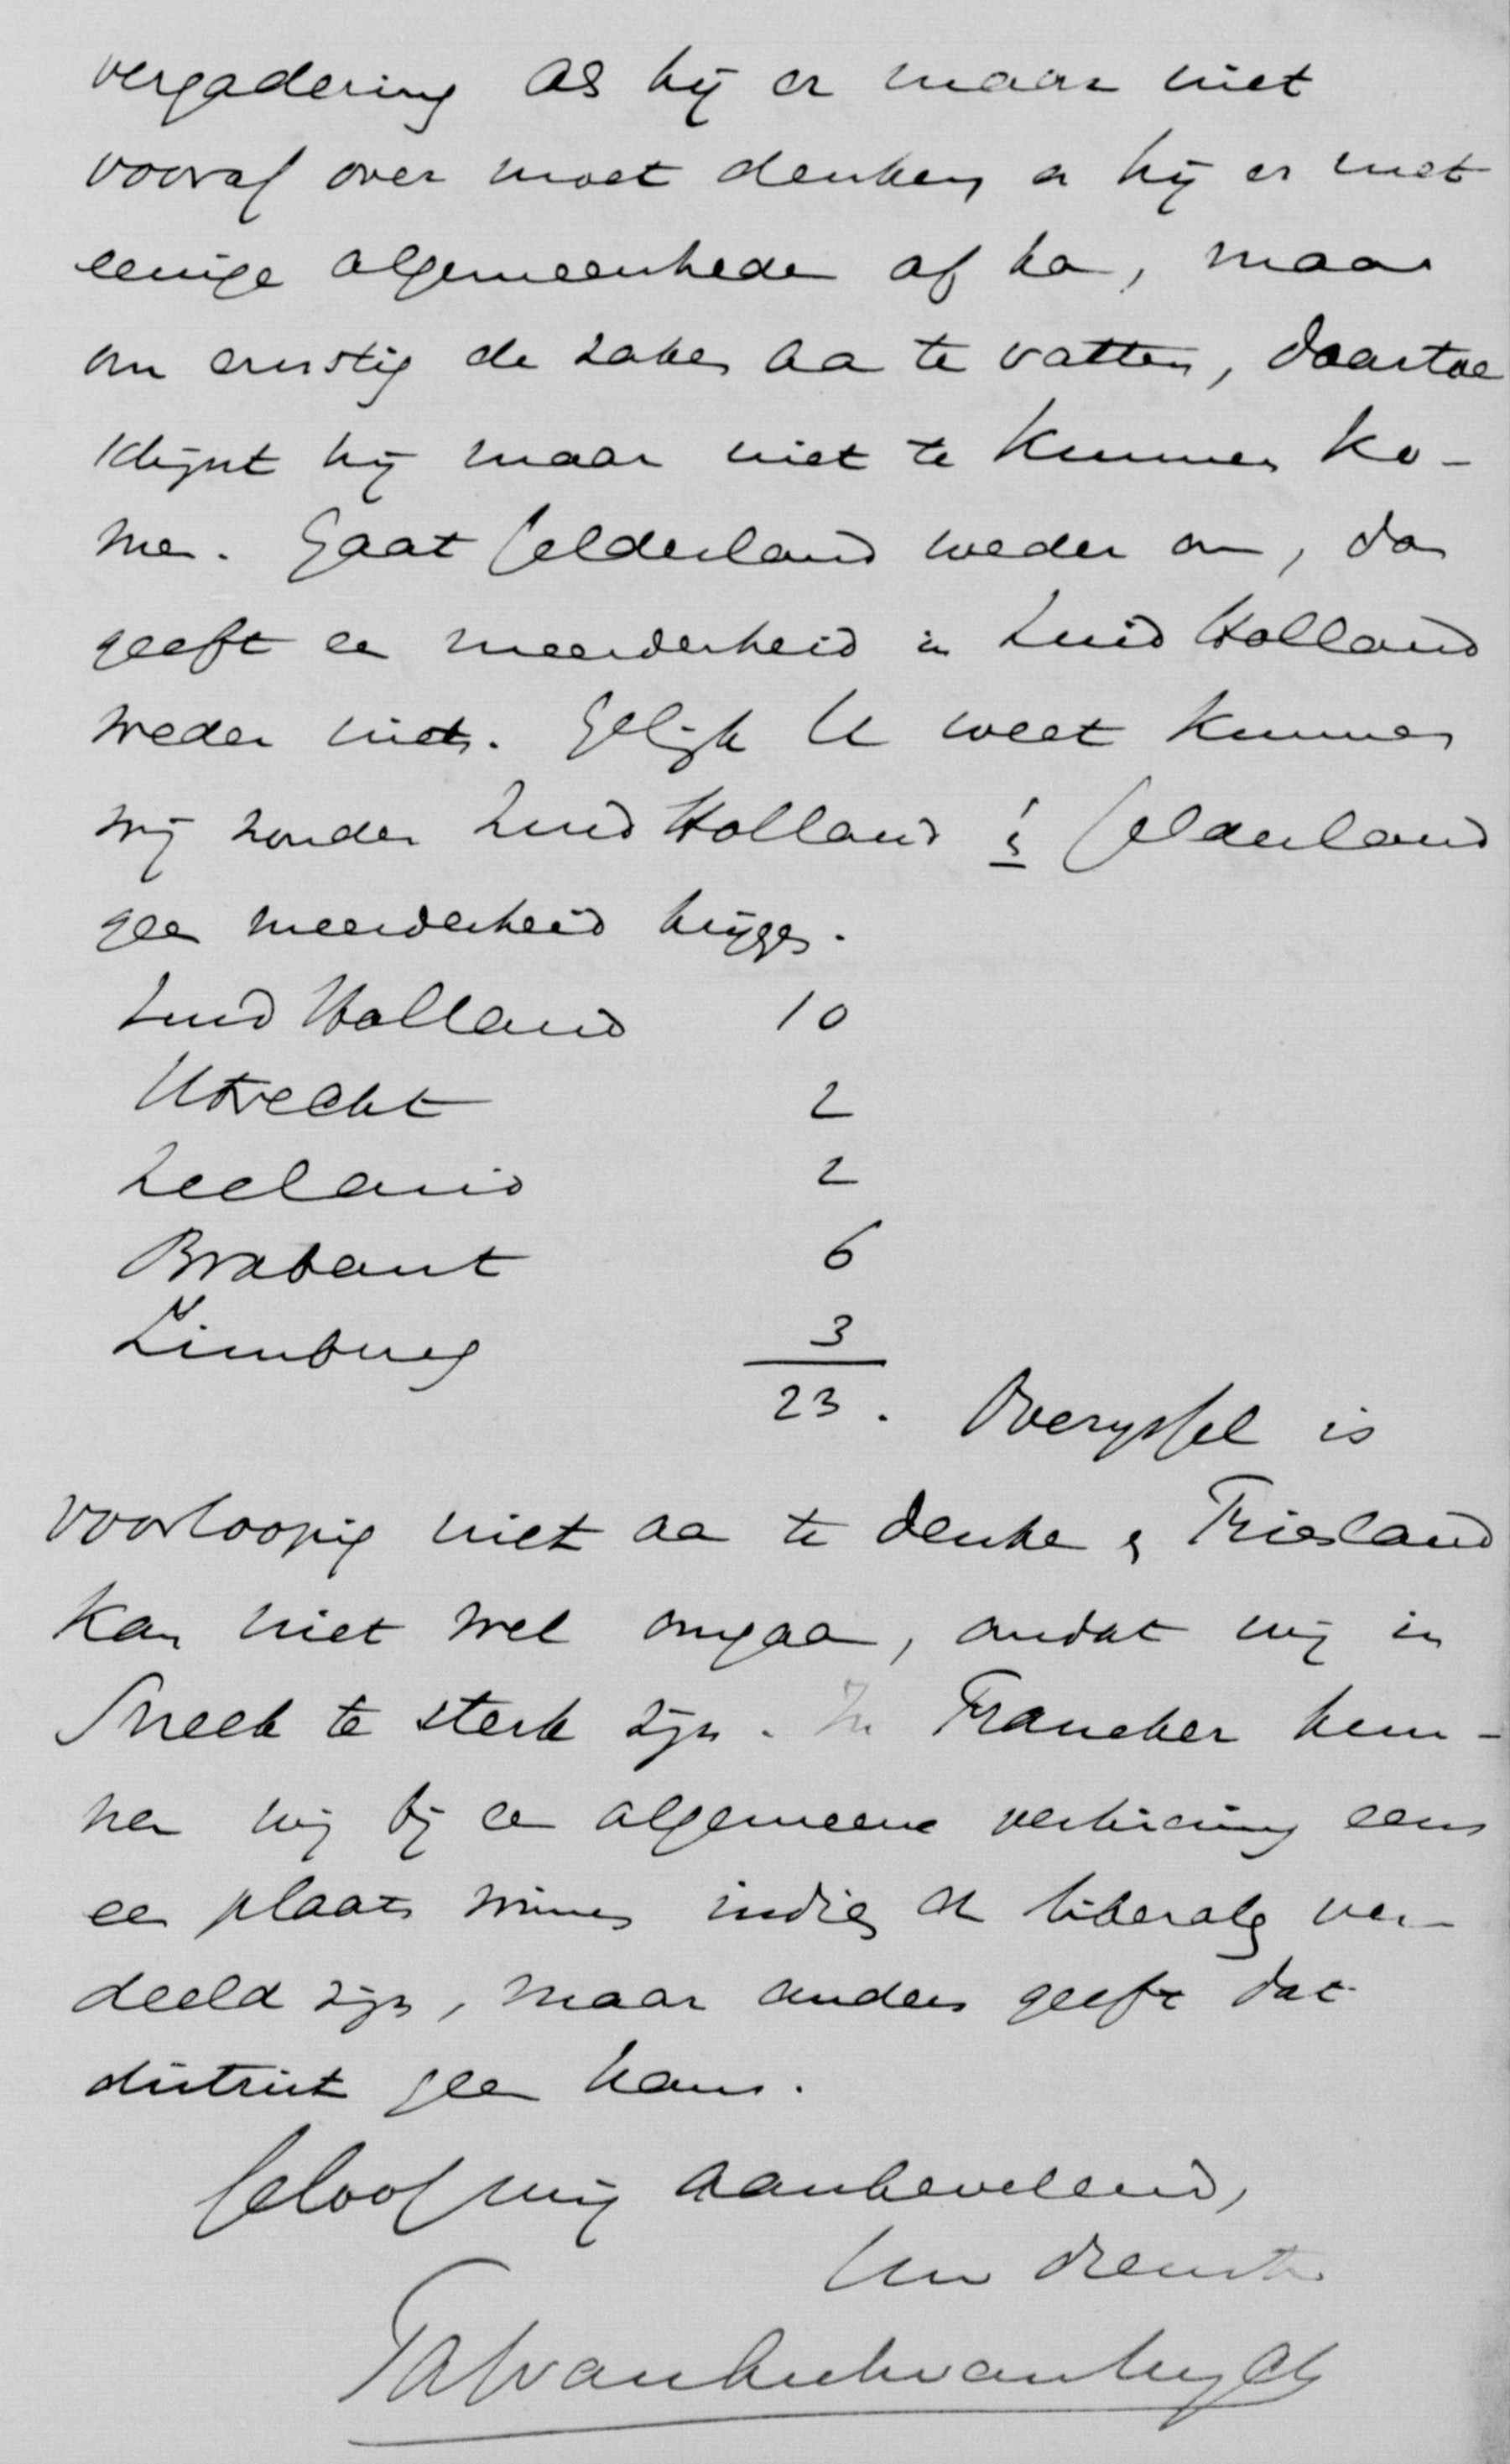 vergadering als hij er maar niet
vooraf over moet denken en hij er met
eenige algemeenheden af kan, maar
om ernstig de zaken aan te vatten, daartoe
schijnt hij maar niet te kunnen ko-
men. Gaat Gelderland weder om, dan
geeft een meerderheid in Zuid Holland
weder niets. Gelijk U weet kunnen
wij zonder Zuid Holland én Gelderland
geen meerderheid krijgen.
Zuid Holland 10
Utrecht 2
Zeeland 2
Brabant 6
Limburg 3
23. Overyssel is
voorloopig niet aan te denken en Friesland
kan niet wel omgaan, omdat wij in
Sneek te sterk zijn. In Franeker kun-
nen wij bij een algemeene verkiezing eens
een plaats winnen indien de liberalen ver-
deeld zijn, maar anders geeft dat
district geen kans.
Geloof mij aanbevelend,
Uw dienstv.